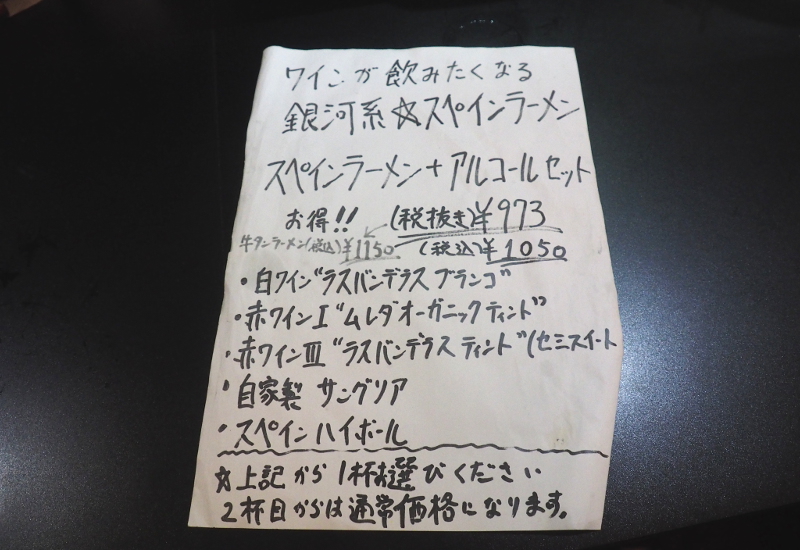 ワインが飲みたくなる
銀河系☆スペインラーメン
スペインラーメン+アルコールセット
お得!! (税抜き)¥973
牛タンラーメン(税込)¥1150 (税込)¥1050
・白ワイン"ラスバンデラス ブランゴ"
・赤ワインⅠ"ムレダオーガニックティント"
・赤ワインⅢ"ラスバンデラス ティント"(セミスイート
・自家製 サングリア
・スペインハイボール
☆上記から1杯お選びください
2杯目からは通常価格になります。